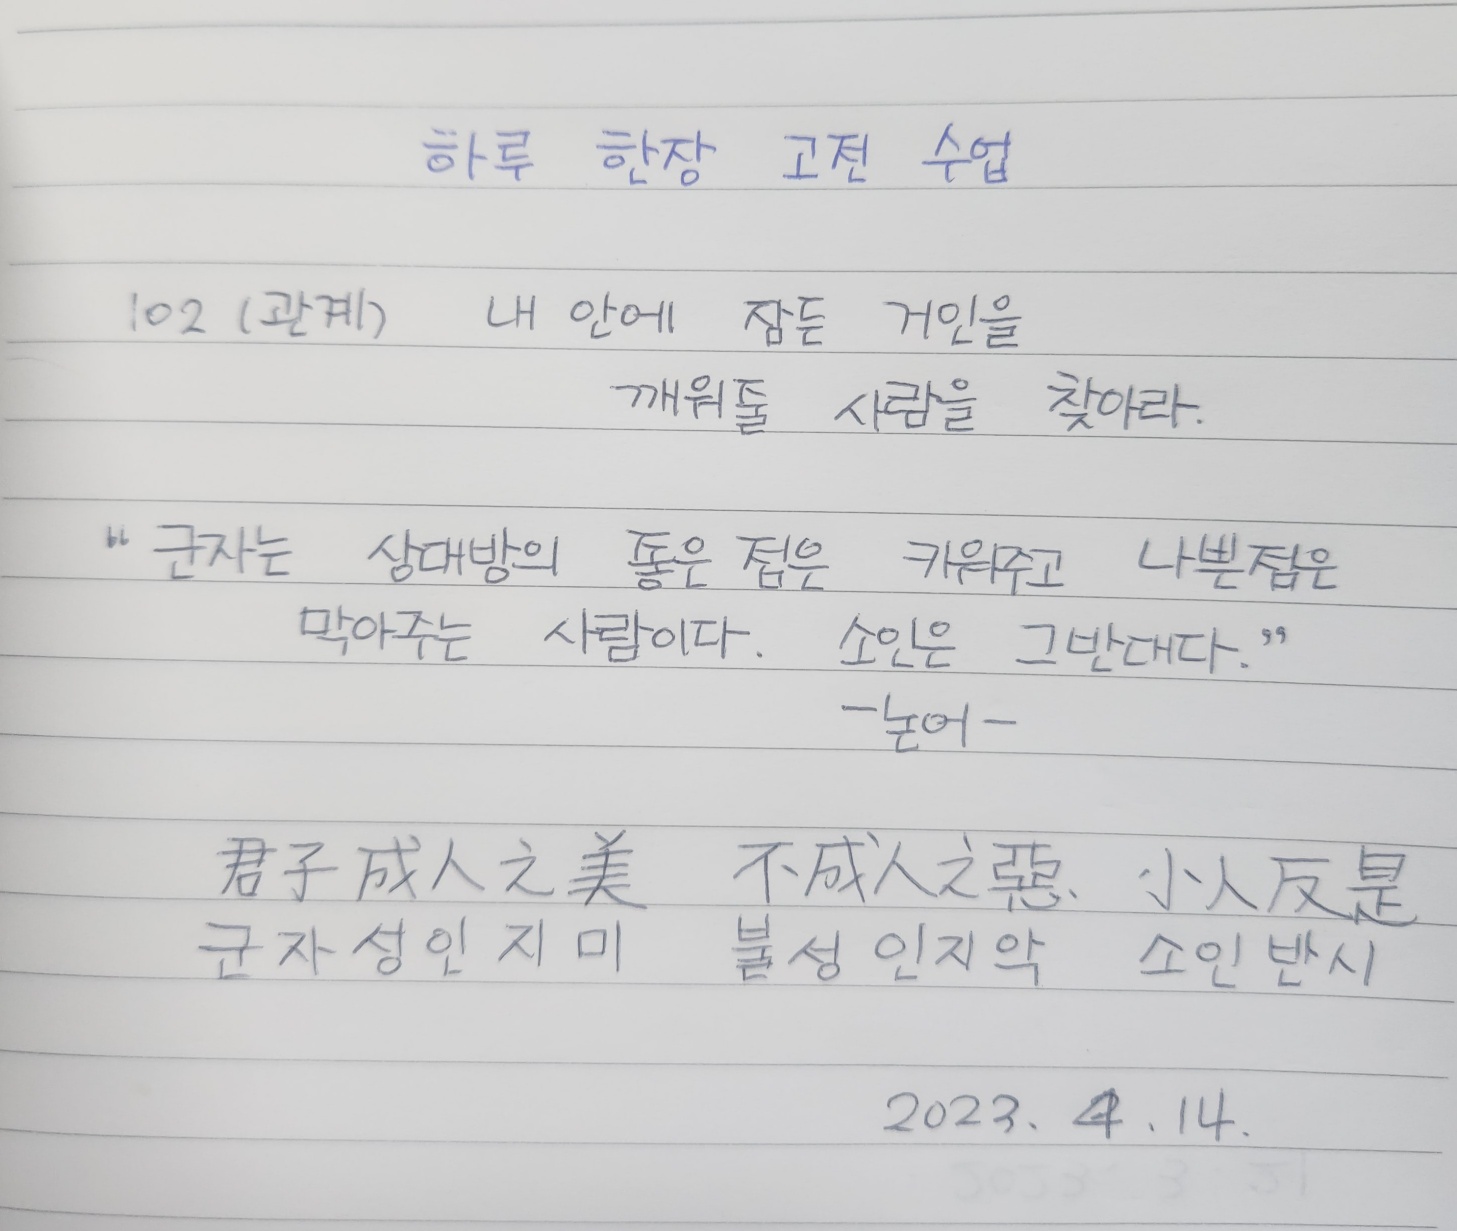 하루 한장 고전 수업
102 (관계) 내 안에 잠든 거인을
깨워줄 사람을 찾아라.
“군자는 상대방의 좋은 점은 키워주고 나쁜점은
막아주는 사람이다. 소인은 그반대다.”
-논어-
君子成人之美 不成人之惡. 小人反是
군자성인지미 불성인지악 소인반시
2023. 4. 14.